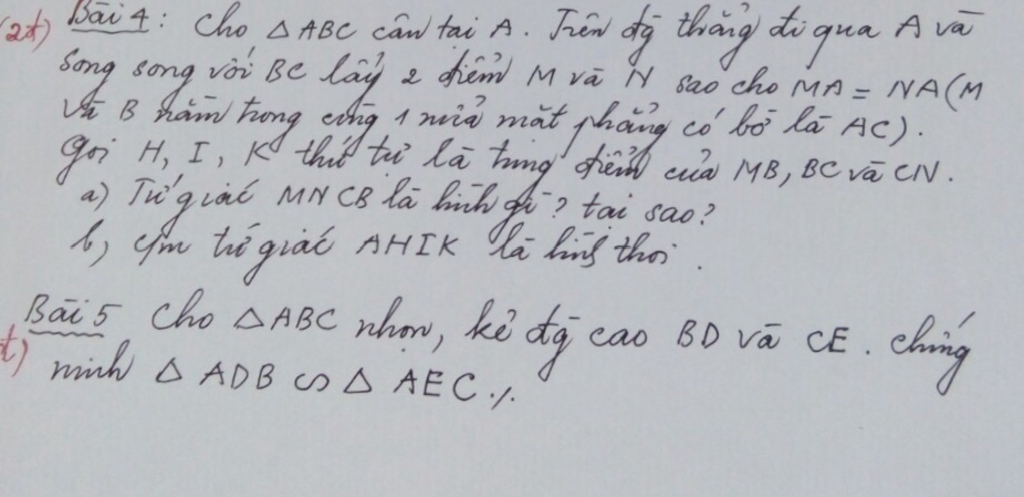 (2đ) Bài 4: Cho △ABC cân tại A. Trên đg thẳng đi qua A và
song song với BC lấy 2 điểm M và N sao cho MA = NA (M
và B nằm trong cùng 1 nửa mặt phẳng có bờ là AC).
Gọi H, I, K thứ tự là trung điểm của MB, BC và CN.
a) Tứ giác MNCB là hình gì? tại sao?
b) C/m tứ giác AHIK là hình thoi.
Bài 5 Cho △ABC nhọn, kẻ đg cao BD và CE. chứng
đ) minh △ ADB ∽ △ AEC./.